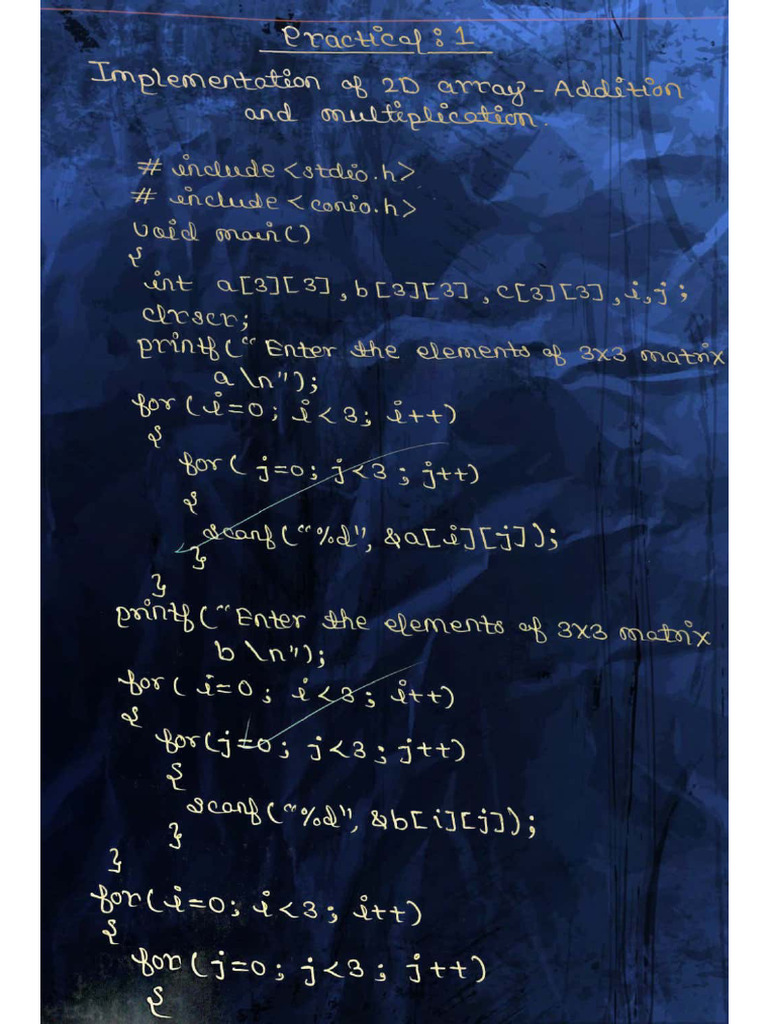 Practical : 1
Implementation of 2D array - Addition
and multiplication.
# include <stdio.h>
# include <conio.h>
void main()
{
int a[3][3], b[3][3], c[3][3], i, j ;
clrscr;
printf(“Enter the elements of 3x3 matrix
a \n");
for (i=0; i<3; i++)
{
for( j=0; j<3 ; j++)
{
scanf(“%d", &a[i][j]);
}
}
printf(“Enter the elements of 3x3 matrix
b \n");
for( i=0 ; i<3 ; i++)
{
for(j=0 ; j<3 ; j++)
{
scanf(“%d", &b[i][j]);
}
}
for(i=0; i<3 ; i++)
{
for(j=0 ; j<3 ; j++)
{